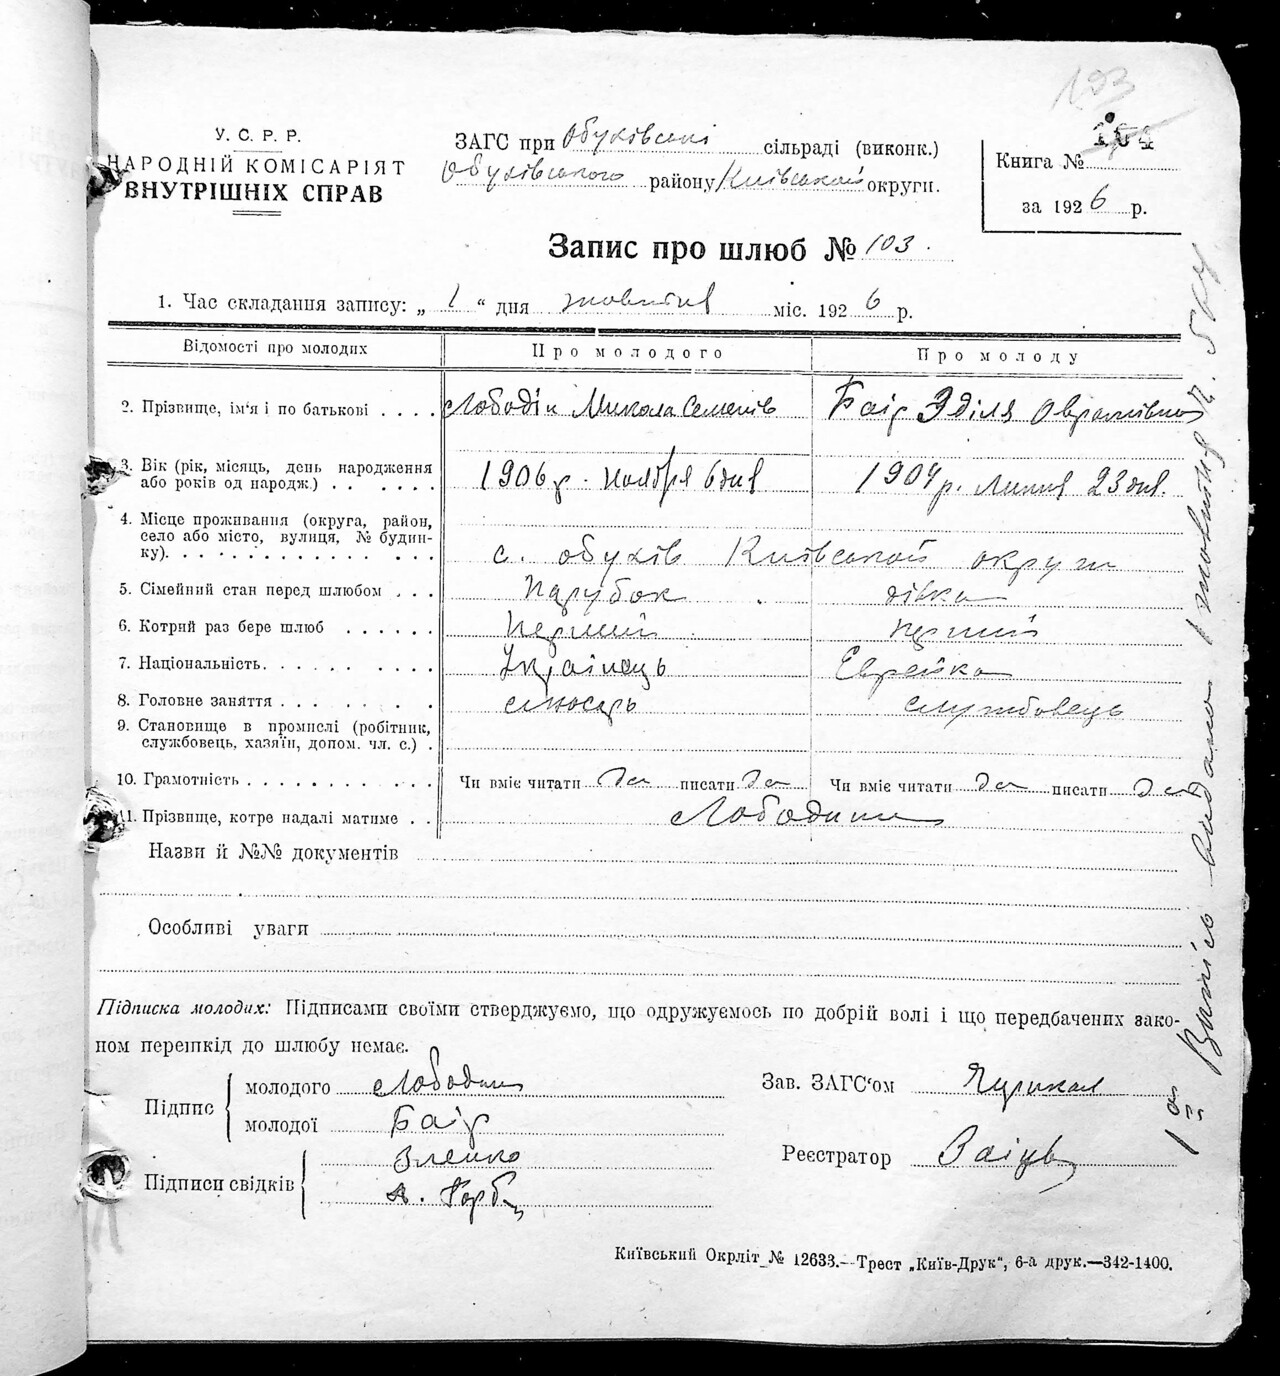 103
У. С. Р. Р.
НАРОДНІЙ КОМІСАРІЯТ
ВНУТРІШНІХ СПРАВ
ЗАГС при Обухівські сільраді (виконк.)
Обухівського району Київськой округи.
Книга №
за 1926 р.
Запис про шлюб № 103.
1. Час складання запису: „ 1 “ дня жовтня міс. 1926 р.
Відомості про молодих
Про молодого
Про молоду
2. Прізвище, ім'я і по батькові . . . . Лободін Микола Семенів Баір Эділя Оврамівна
3. Вік (рік, місяць, день народження
або років од народж.) . . . . . . 1906 р. Ноября 6 дня 1904 р. Липня 23 дня.
4. Місце проживання (округа, район,
село або місто, вулиця, № будин-
ку). . . . . . . . . . . . . с. Обухів Київськой округи
5. Сімейний стан перед шлюбом . . . Парубок дівка
6. Котрий раз бере шлюб . . . . . . Перший перший
7. Національність. . . . . . . . . . Українець Еврейка
8. Головне заняття . . . . . . . . слюсарь службовець
9. Становище в промислі (робітник,
службовець, хазяїн, допом. чл. с.) .
10. Грамотність . . . . . . . . . . Чи вміє читати да писати да Чи вміє читати да писати да
11. Прізвище, котре надалі матиме . . Лободини
Назви й №№ документів
Особливі уваги
Підписка молодих: Підписами своїми стверджуємо, що одружуємось по добрій волі і що передбачених зако-
ном перешкід до шлюбу немає.
Підпис
молодого Лободин
молодої Баір
Підписи свідків
Зленко
А. Горб
Зав. ЗАГС'ом
Реєстратор
Київський Окрліт № 12633.—Трест „Київ-Друк“, 6-а друк.—342-1400.
Випись видано 1 жовтня